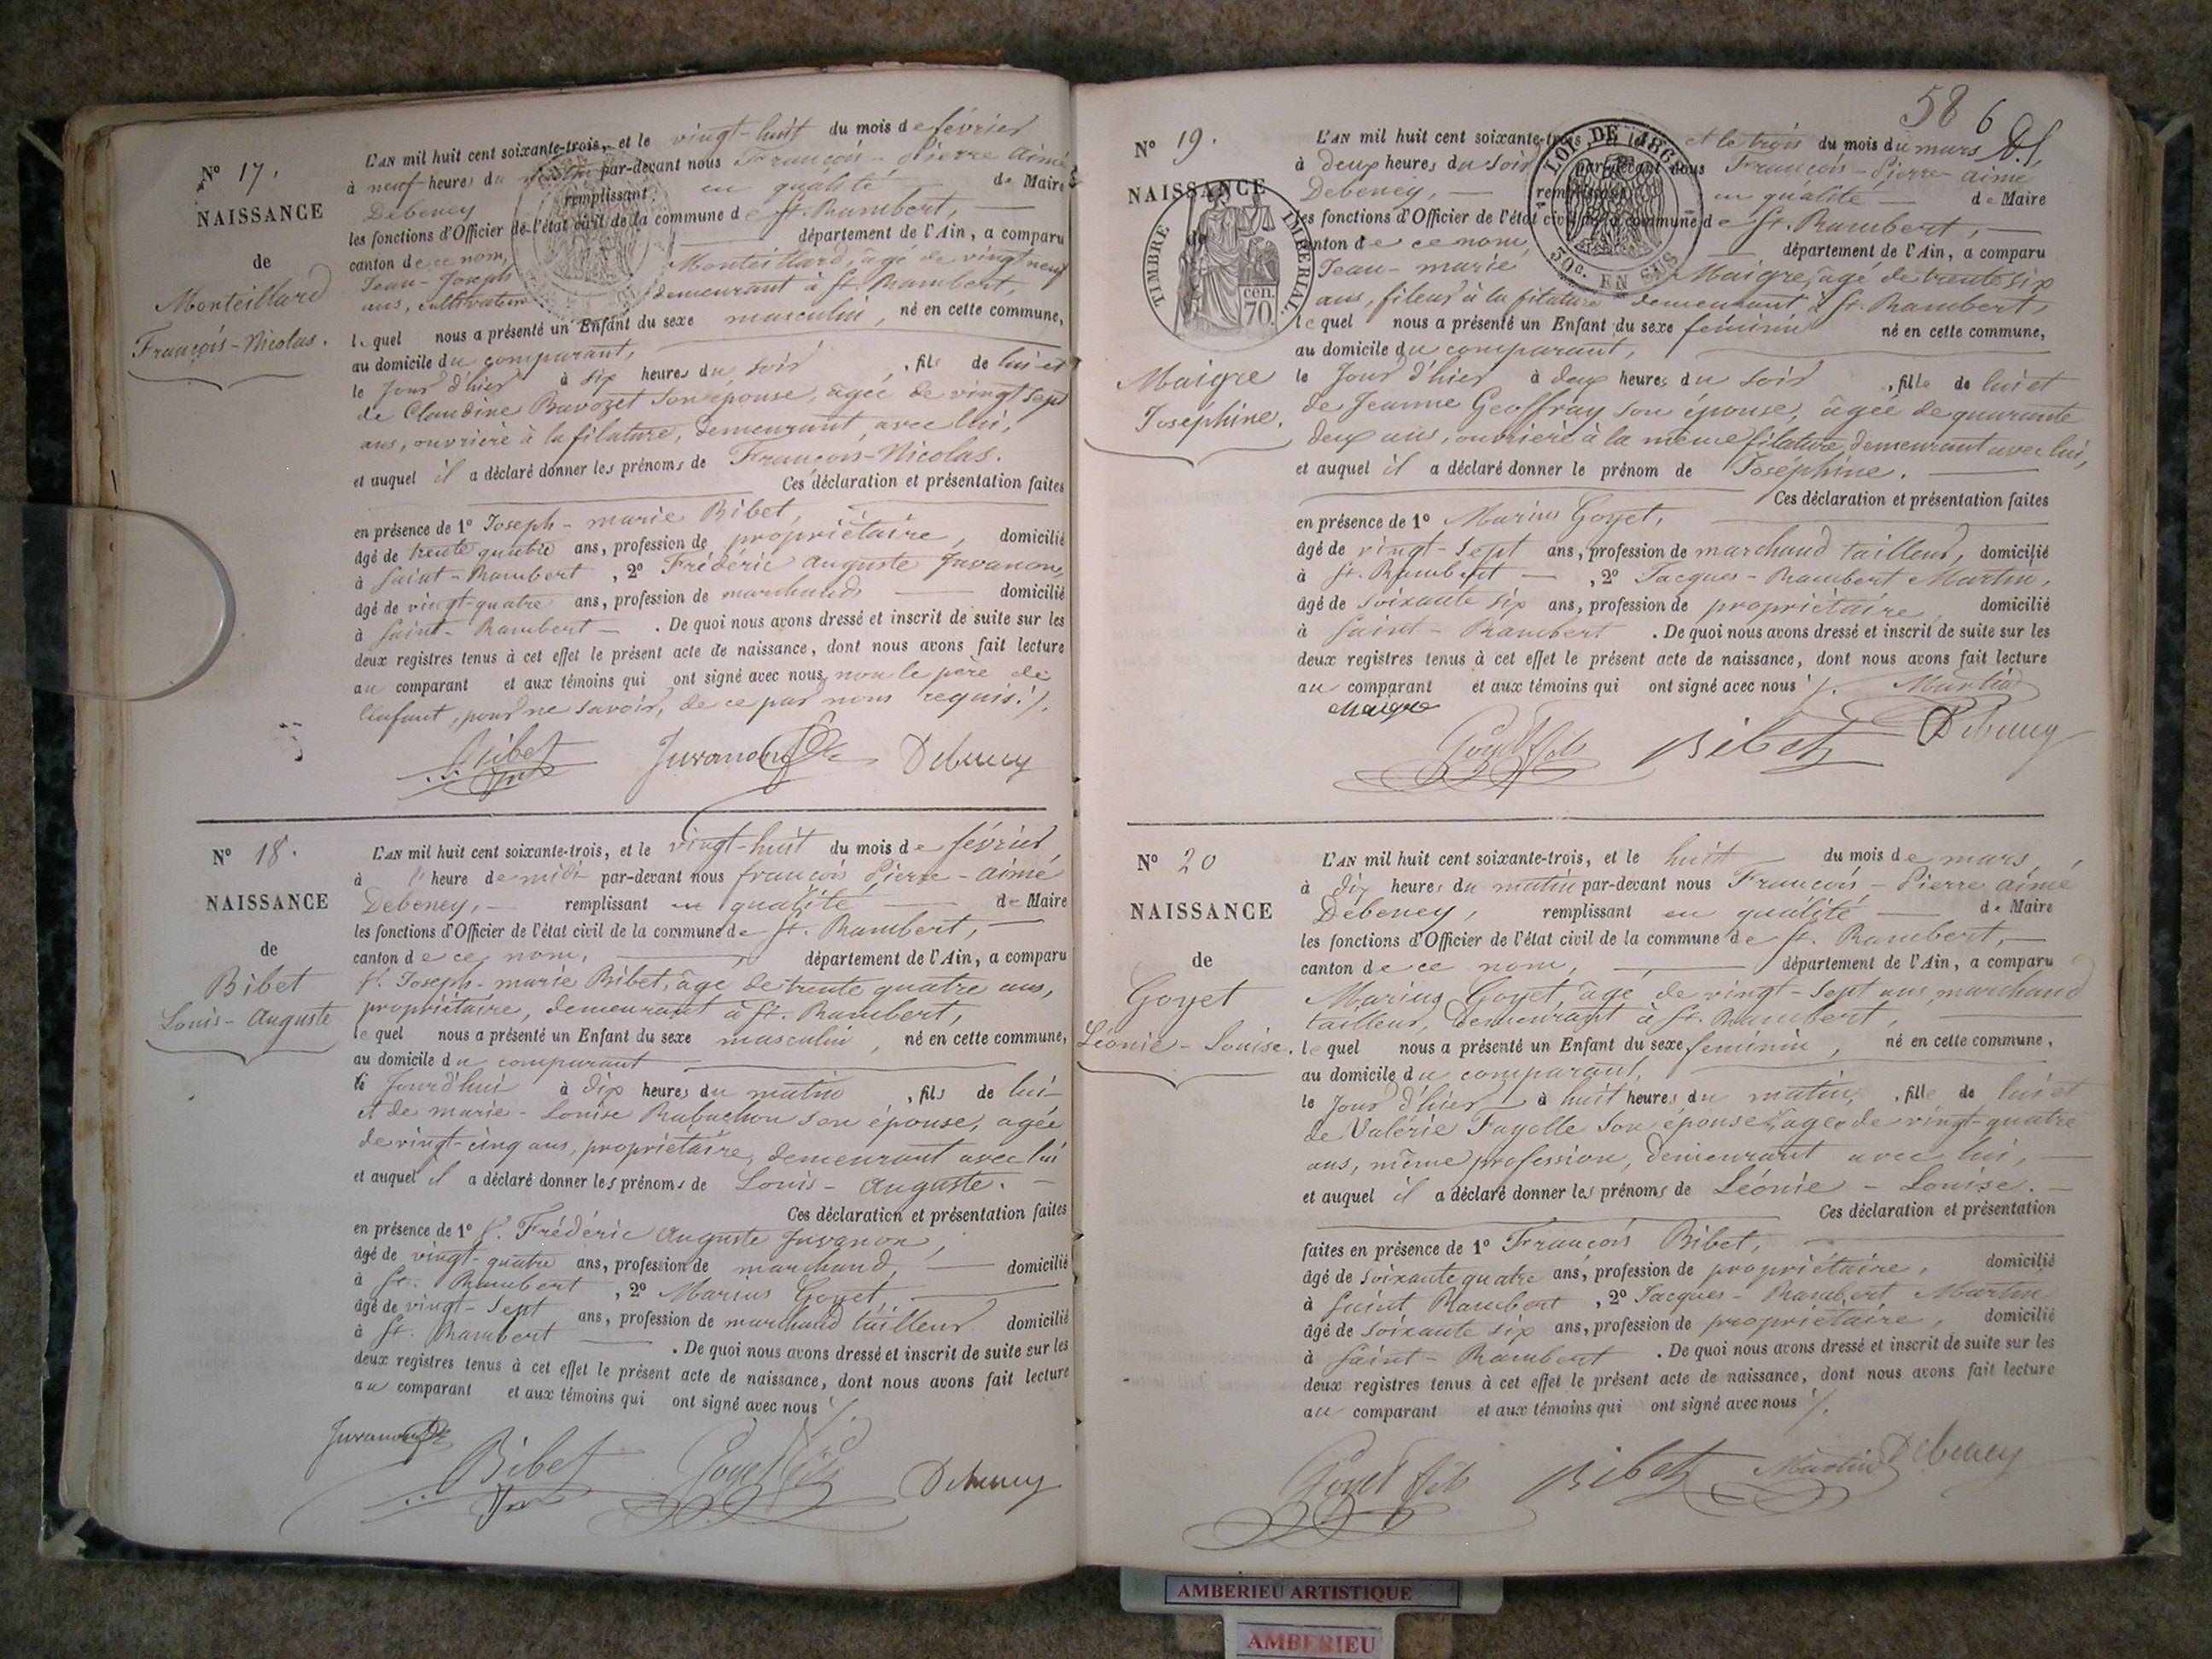 N° 17.
NAISSANCE
de
Monteillard
François-Nicolas.
L'AN mil huit cent soixante-trois, et le vingt-huit du mois de février
à neuf heures du matin par-devant nous François-Pierre Aimé
Debeney remplissant en qualité de Maire
les fonctions d'Officier de l'état civil de la commune de St. Rambert,
canton de ce nom, département de l'Ain, a comparu
Jean-Joseph Monteillard, âgé de vingt neuf
ans, cultivateur demeurant à St. Rambert,
lequel nous a présenté un Enfant du sexe masculin, né en cette commune,
au domicile du comparant,
le jour d'hier à six heures du soir, fils de lui et
de Claudine Bavozet son épouse, âgée de vingt sept
ans, ouvrière à la filature, demeurant avec lui,
et auquel il a déclaré donner les prénoms de François-Nicolas.
Ces déclaration et présentation faites
en présence de 1° Joseph-marie Bibet,
âgé de trente quatre ans, profession de propriétaire, domicilié
à Saint-Rambert, 2° Frédéric Auguste Juvanon,
âgé de vingt-quatre ans, profession de marchand domicilié
à Saint-Rambert. De quoi nous avons dressé et inscrit de suite sur les
deux registres tenus à cet effet le présent acte de naissance, dont nous avons fait lecture
au comparant et aux témoins qui ont signé avec nous non le père de
l'enfant, pour ne savoir, de ce par nous requis ./.
Bibet Juvanon Debeney
N° 18.
NAISSANCE
de
Bibet
Louis-Auguste
L'AN mil huit cent soixante-trois, et le vingt-huit du mois de février
à l'heure de midi par-devant nous françois Pierre-Aimé
Debeney, remplissant en qualité de Maire
les fonctions d'Officier de l'état civil de la commune de St. Rambert,
canton de ce nom, département de l'Ain, a comparu
Sr. Joseph-marie Bibet, âgé de trente quatre ans,
propriétaire, demeurant à St. Rambert,
lequel nous a présenté un Enfant du sexe masculin, né en cette commune,
au domicile du comparant
le jourd'hui à dix heures du matin, fils de lui
et de marie-Louise Rabuchon son épouse, agée
de vingt-cinq ans, propriétaire, demeurant avec lui
et auquel il a déclaré donner les prénoms de Louis-Auguste.
Ces déclaration et présentation faites
en présence de 1° Sr. Frédéric Auguste Juvanon,
âgé de vingt-quatre ans, profession de marchand, domicilié
à St. Rambert, 2° Marius Goyet
âgé de vingt-sept ans, profession de marchand tailleur domicilié
à St. Rambert. De quoi nous avons dressé et inscrit de suite sur les
deux registres tenus à cet effet le présent acte de naissance, dont nous avons fait lecture
au comparant et aux témoins qui ont signé avec nous ./.
Juvanon Bibet Goyet fils Debeney
58 6
N° 19.
NAISSANCE
de
TIMBRE IMPERIAL.
70 cen.
LOI DE 1862
50c. EN SUS
Maigre
Joséphine.
L'AN mil huit cent soixante-trois et le trois du mois de mars
à deux heures du soir par-devant nous François-Pierre Aimé
Debeney, remplissant en qualité de Maire
les fonctions d'Officier de l'état civil de la commune de St. Rambert,
canton de ce nom, département de l'Ain, a comparu
Jean-marie Maigre, âgé de trente six
ans, fileur à la filature demeurant à St. Rambert,
lequel nous a présenté un Enfant du sexe féminin né en cette commune,
au domicile du comparant,
le jour d'hier à deux heures du soir, fille de lui et
de Jeanne Geoffray son épouse, âgée de quarante
deux ans, ouvrière à la même filature, demeurant avec lui,
et auquel il a déclaré donner le prénom de Joséphine.
Ces déclaration et présentation faites
en présence de 1° Marius Goyet,
âgé de vingt-sept ans, profession de marchand tailleur, domicilié
à St. Rambert, 2° Jacques-Rambert Martin,
âgé de soixante six ans, profession de propriétaire, domicilié
à Saint-Rambert. De quoi nous avons dressé et inscrit de suite sur les
deux registres tenus à cet effet le présent acte de naissance, dont nous avons fait lecture
au comparant et aux témoins qui ont signé avec nous ./. Martin
Maigre
Goyet fils Bibet Debeney
N° 20
NAISSANCE
de
Goyet
Léonie-Louise.
L'AN mil huit cent soixante-trois, et le huit du mois de mars,
à dix heures du matin par-devant nous François-Pierre Aimé
Debeney, remplissant en qualité de Maire
les fonctions d'Officier de l'état civil de la commune de St. Rambert,
canton de ce nom, département de l'Ain, a comparu
Marius Goyet, âgé de vingt-sept ans marchand
tailleur, demeurant à St. Rambert,
lequel nous a présenté un Enfant du sexe féminin, né en cette commune,
au domicile du comparant,
le jour d'hier à huit heures du matin, fille de lui et
de Valérie Fayolle son épouse, âgée de vingt-quatre
ans, même profession, demeurant avec lui,
et auquel il a déclaré donner les prénoms de Léonie-Louise.
Ces déclaration et présentation
faites en présence de 1° François Bibet,
âgé de soixante quatre ans, profession de propriétaire, domicilié
à Saint Rambert, 2° Jacques-Rambert Martin
âgé de soixante six ans, profession de propriétaire, domicilié
à Saint-Rambert. De quoi nous avons dressé et inscrit de suite sur les
deux registres tenus à cet effet le présent acte de naissance, dont nous avons fait lecture
au comparant et aux témoins qui ont signé avec nous ./.
Goyet fils Bibet Martin Debeney
AMBERIEU ARTISTIQUE
AMBERIEU